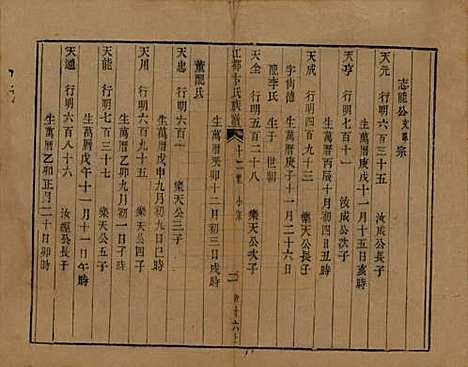 志龍公支專宗
天元 行明六百三十五 汝成公長子
天亨 行明六百 汝成公次子
生萬曆庚戌十一月十五日亥時
天成 行明四百九十三 樂天公長子
生萬曆丙辰十月初四日丑時
字尚德 生萬曆庚子十一月二十六日
配李氏 生子 世朝
天全 行明六百一 樂天公次子
生萬曆癸卯十二月初三日戌時
江都卞氏族譜
董配氏
天忠 行明六百一 樂天公三子
生萬曆戊申九月初九日巳時
天川 行明六百九十五 樂天公四子
生萬曆乙卯九月初一日子時
天龍 行明六百七十七 樂天公五子
生萬曆戊午十一月十一日午時
天通 行明六百八十六 汝經公長子
生萬曆乙卯正月二十日卯時